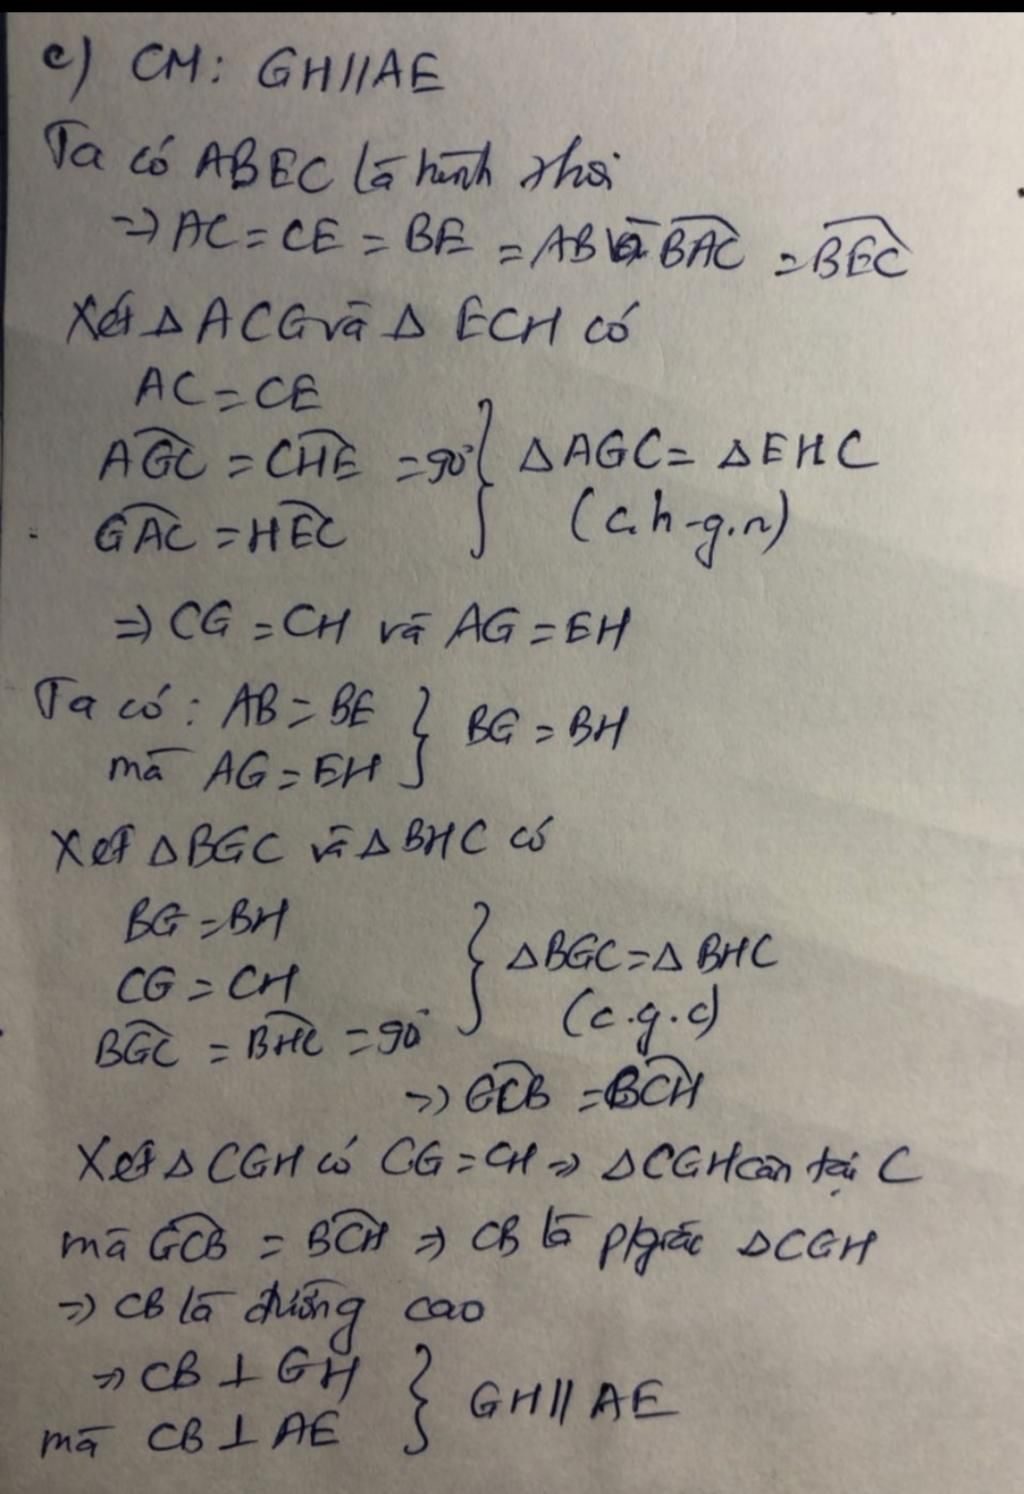 c) CM: GH//AE
Ta có ABEC là hình thoi
=> AC = CE = BE = AB và BAC = BEC
Xét Δ ACG và Δ ECH có
AC = CE
AGC = CHE = 90° } Δ AGC = Δ EHC
GAC = HEC (c.h-g.n)
=> CG = CH và AG = EH
Ta có: AB = BE } BG = BH
mà AG = EH
Xét Δ BGC và Δ BHC có
BG = BH
CG = CH } Δ BGC = Δ BHC
BGC = BHC = 90° (c.g.c)
=> GCB = BCH
Xét Δ CGH có CG = CH => Δ CGH cân tại C
mà GCB = BCH => CB là p/giác Δ CGH
=> CB là đường cao
=> CB ⊥ GH } GH // AE
mà CB ⊥ AE